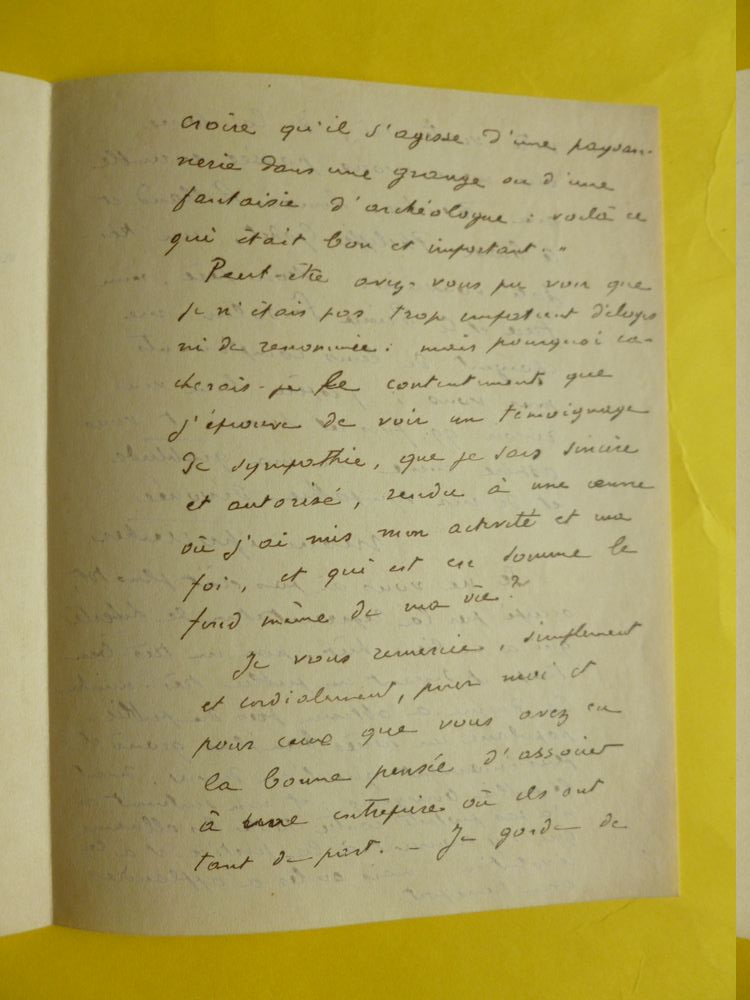 croire qu'il s'agisse d'une paysan-
nerie dans une grange ou d'une
fantaisie d'archéologue : voilà ce
qui était bon et important. "
Peut-être avez-vous pu voir que
je n'étais pas trop impatient d'éloges
ni de renommée : mais pourquoi ca-
cherais-je le contentement que
j'éprouve de voir un témoignage
de sympathie, que je sais sincère
et autorisé, rendu à une œuvre
où j'ai mis mon activité et ma
foi, et qui est en somme le
fond même de ma vie ?
Je vous remercie, simplement
et cordialement, pour moi et
pour ceux que vous avez eu
la bonne pensée d'associer
à une entreprise où ils ont
tant de part. – Je garde de